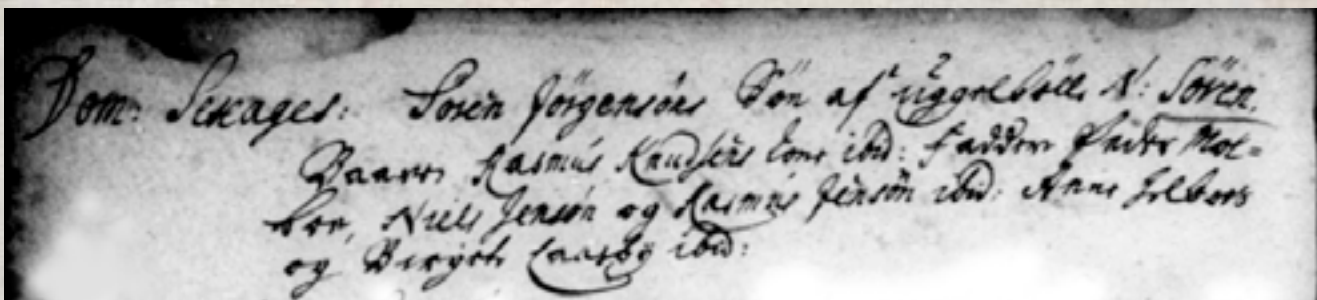 Dom: Sexages: Sören Jörgensöns Sön af Uggelböll N: Sören.
Baaren Rasmus Knudsens Kone ibid: Faddere Peder Mol=
boe, Niels Jensön og Rasmus Jensön ibid: Anne
og Birgete ibid: